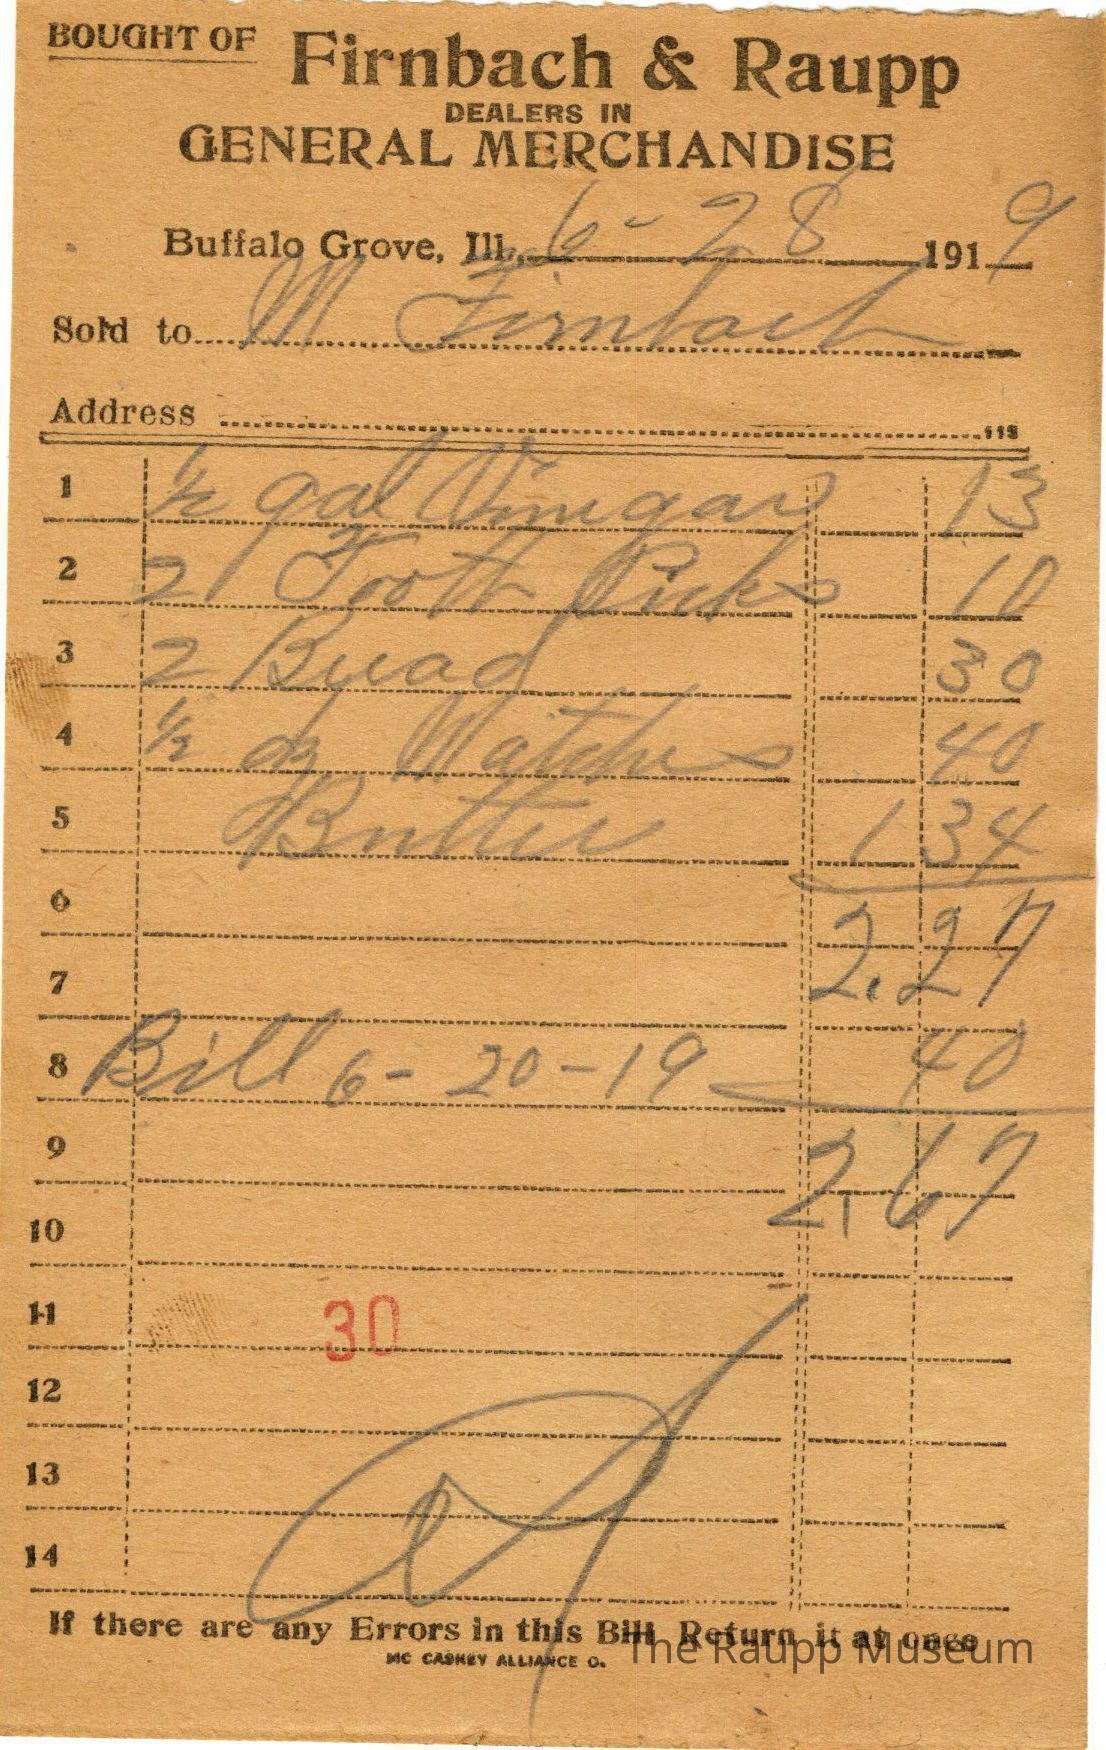 BOUGHT OF Firnbach & Raupp
DEALERS IN
GENERAL MERCHANDISE
Buffalo Grove, Ill., 6-28 1919
Sold to M Firnbach
Address 113
1 ½ gal Vinegar 13
2 2 Tooth Picks 10
3 2 Bread 30
4 ½ dz Matches 40
5 Butter 1 34
6
2.27
7
8 Bill 6-20-19 40
9
2,67
10
11 30
12
13
14
If there are any Errors in this Bill Return it at once
MC CASKEY ALLIANCE O.
The Raupp Museum